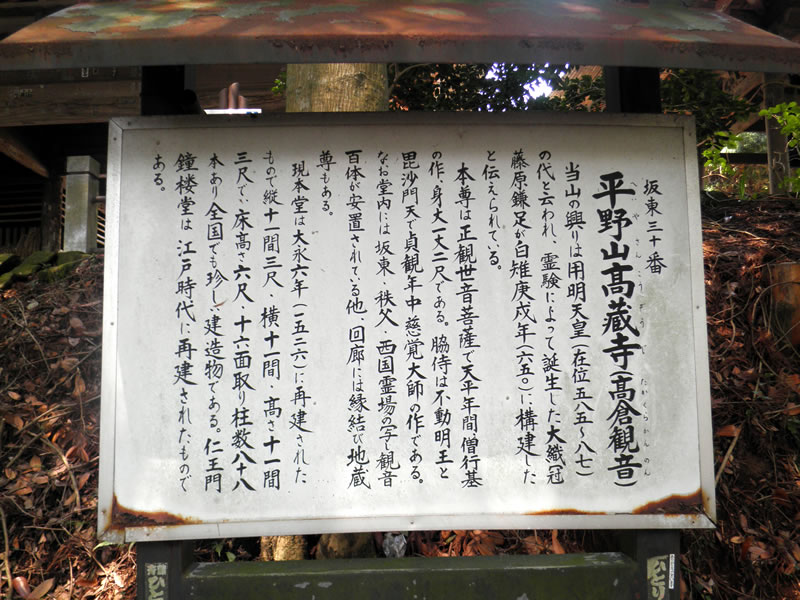 坂東三十番
平野山高蔵寺(高倉観音)
へいやさんこうぞうじ たかくらかんのん
当山の興りは用明天皇(在位五八五〜八七)
の代と云われ、霊験によって誕生した大織冠
藤原鎌足が白雉庚戌年(六五〇)に構建した
と伝えられている。
本尊は正観世音菩薩で天平年間僧行基
の作、身丈一丈二尺である。脇侍は不動明王と
毘沙門天で貞観年中慈覚大師の作である。
なお堂内には坂東、秩父、西国霊場の写し観音
百体が安置されている他、回廊には縁結び地蔵
尊もある。
現本堂は大永六年(一五二六)に再建された
もので縦十一間三尺、横十一間、高さ十一間
三尺で、床高さ六尺、十六面取り柱数八十八
本あり全国でも珍しい建造物である。仁王門
鐘楼堂は江戸時代に再建されたもので
ある。